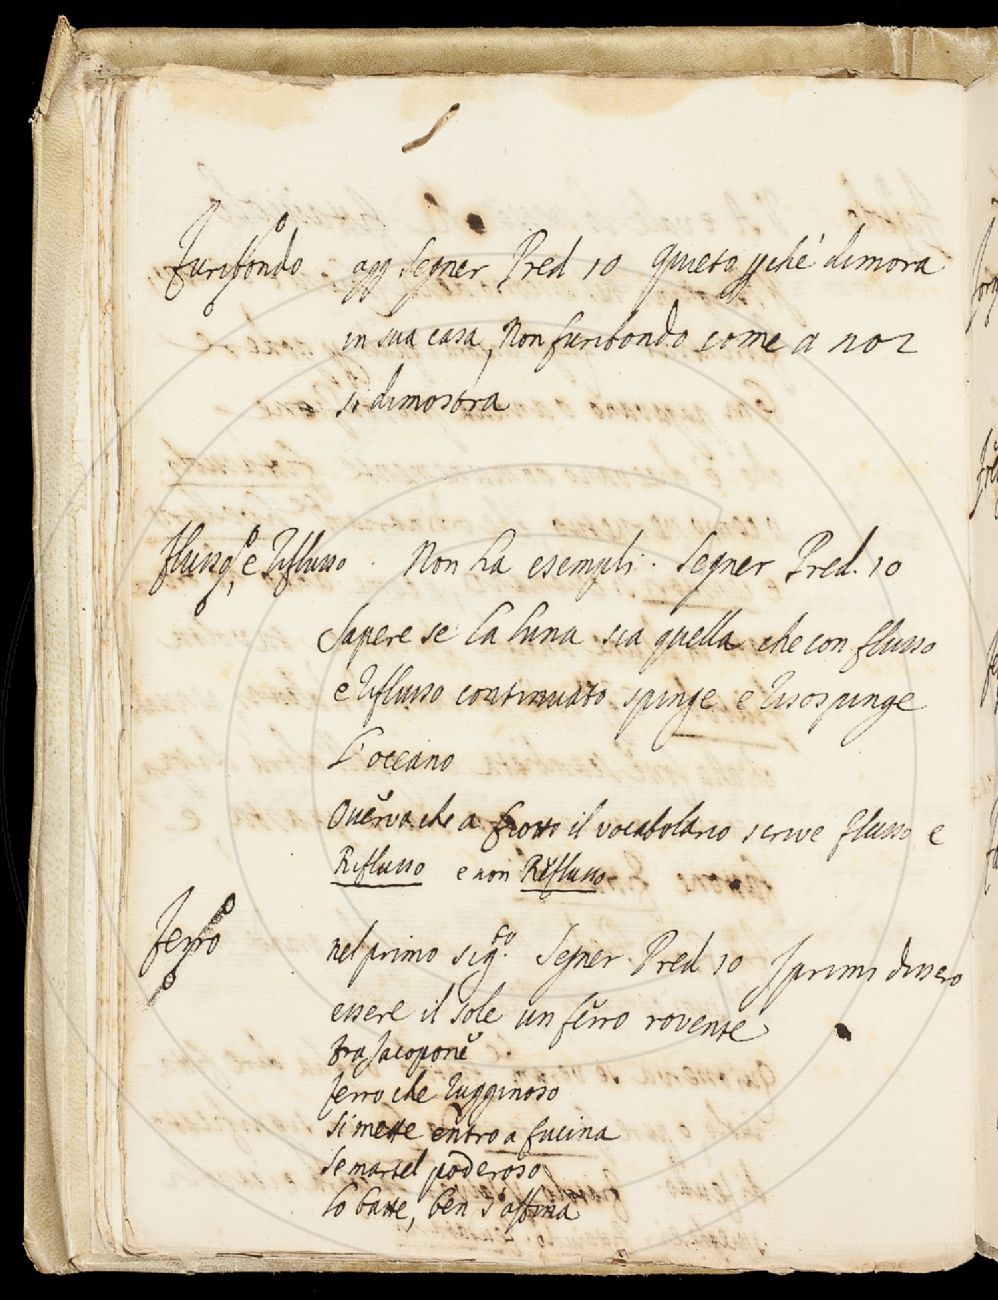 Furibondo agg Segner Pred 10 quieto ppchè dimora
in sua casa, non furibondo come a noi
si dimostra
flusso, e Riflusso. Non ha esempli. Segner Pred. 10
Sapere se la luna sia quella che con flusso
e Riflusso continuato spinge e Risospinge
l'occeano
Osserva che a il vocabolario scrive flusso e
Riflusso e non Reflusso
Ferro nel primo sig.to Segner Pred 10 I primi dissero
essere il sole un ferro rovente
fra Jacopone
ferro che Rugginoso
si mette entro a fucina
Se martel poderoso
lo batte, ben s'affina